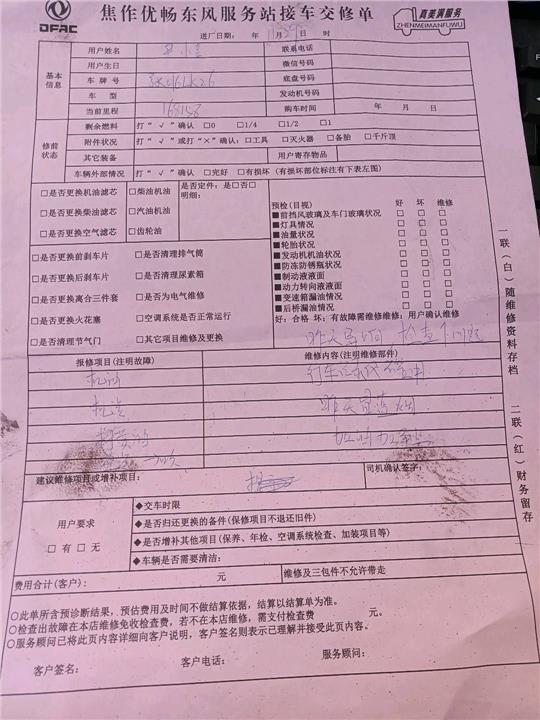 DFAC
焦作优畅东风服务站接车交修单
真美满服务
ZHENMEIMANFUWU
送厂日期： 年 月 日 时
基本信息
用户姓名 联系电话
用户生日 微信号码
车牌号 底盘号码
车 型 发动机号码
当前里程 168158 购车时间 年 月 日
修前状态
剩余燃料 打“√”确认 □0 □1/4 □1/2 □1
附件状况 打“√”或打“×”确认：□工具 □灭火器 □备胎 □千斤顶
其它装备 用户寄存物品
车辆外部情况 打“√”确认 □完好 □有损坏（有损坏部位标注有下表左图）
□是否更换机油滤芯 □柴油机油
□是否更换柴油滤芯 □汽油机油
□是否更换空气滤芯 □齿轮油
是否定件：是□否□
明细：
□是否更换前刹车片 □是否清理排气筒
□是否更换后刹车片 □是否清理尿素箱
□是否更换离合三件套 □是否为电气维修
□是否更换火花塞 □空调系统是否正常运行
□是否清理节气门 □其它项目维修及更换
预检（目视） 好 坏 维修
■前挡风玻璃及车门玻璃状况 □ □ □
■灯具情况 □ □ □
■油量状况 □ □ □
■轮胎状况 □ □ □
■发动机机油状况 □ □ □
■防冻防锈瓶状况 □ □ □
■制动液液面 □ □ □
■动力转向液液面 □ □ □
■变速箱漏油情况 □ □ □
■后桥漏油情况 □ □ □
好：合格 坏：有故障需维修维修：用户确认维修
报修项目（注明故障） 维修内容（注明维修部件）
机油
昨天
建议维修项目或增补项目： 司机确认签字：
用户要求
□有□无
◆交车时限
◆是否归还更换的备件（保修项目不退还旧件）
◆是否增补其他项目（保养、年检、空调系统检查、加装项目等）
◆车辆是否需要清洁：
费用合计（客户）： 元 维修及三包件不允许带走
○此单所含预诊断结果，预估费用及时间不做结算依据，结算以结算单为准。
○检查出故障在本店维修免收检查费，若不在本店维修，需支付检查费 元。
○服务顾问已将此页内容详细向客户说明，客户签名则表示已理解并接受此页内容。
客户签名： 客户电话： 服务顾问：
一联（白）随维修资料存档 二联（红）财务留存